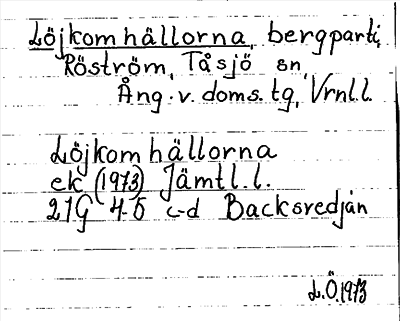 Löjkomhällorna, bergparti,
Röström, Tåsjö sn,
Ång. v. doms. tg, Vrnl.l.
Löjkomhällorna
ek (1973) Jämtl.l.
21G 4-5 c-d Backsvedjan
L.Ö.1973